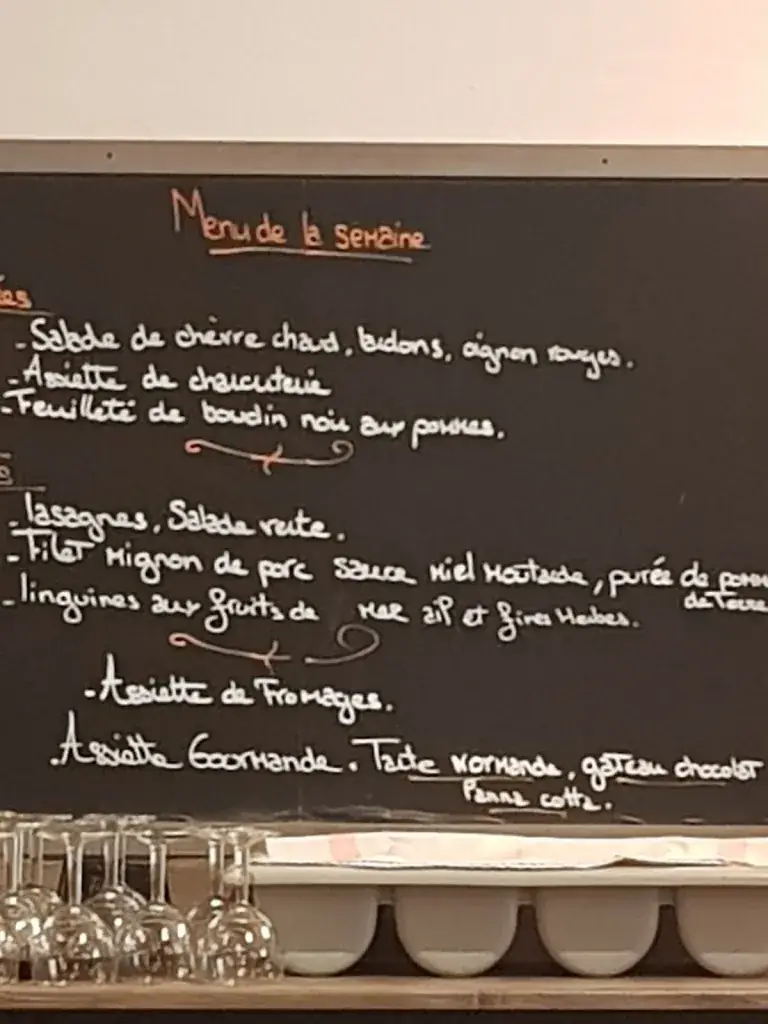 Menu de la semaine
ées
- Salade de chèvre chaud, lardons, oignon rouges.
- Assiette de charcuterie
- Feuilleté de boudin noir aux pommes.
s
- lasagnes, Salade verte.
- Filet Mignon de porc sauce Miel Moutarde, purée de pomm
de Terre
- linguines aux fruits de Mer ail et fines Herbes.
- Assiette de Fromages.
. Assiette Gourmande. Tarte Normande, gâteau chocolat
Panna cotta.